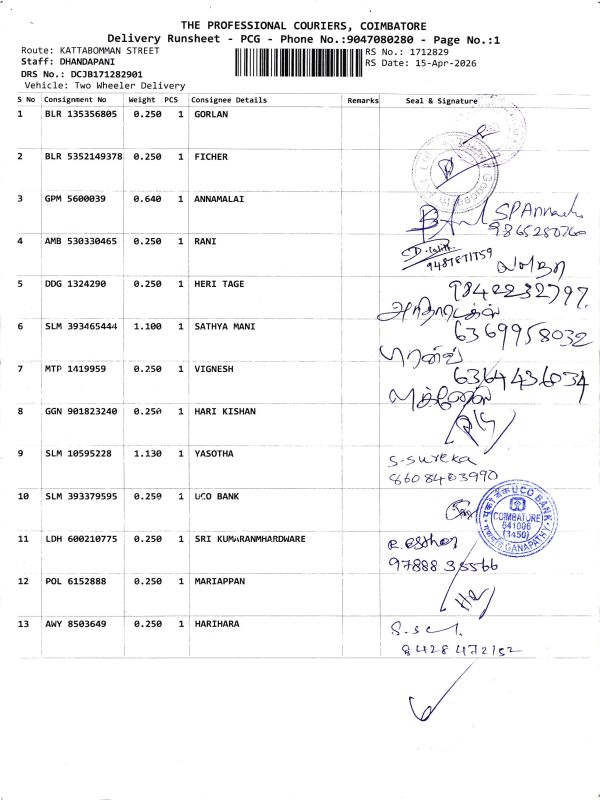 THE PROFESSIONAL COURIERS, COIMBATORE
Delivery Runsheet - PCG - Phone No.:9047080280 - Page No.:1
Route: KATTABOMMAN STREET
RS No.: 1712829
Staff: DHANDAPANI
RS Date: 15-Apr-2026
DRS No.: DCJB171282901
Vehicle: Two Wheeler Delivery
S No Consignment No Weight PCS Consignee Details Remarks Seal & Signature
1 BLR 135356805 0.250 1 GORLAN
2 BLR 5352149378 0.250 1 FICHER
3 GPM 5600039 0.640 1 ANNAMALAI
SPAnnamalai
9865280760
4 AMB 530330465 0.250 1 RANI
5 DDG 1324290 0.250 1 HERI TAGE
9842232797
6 SLM 393465444 1.100 1 SATHYA MANI
6369958032
7 MTP 1419959 0.250 1 VIGNESH
6364436034
8 GGN 901823240 0.250 1 HARI KISHAN
9 SLM 10595228 1.130 1 YASOTHA
S-Sureka
8608403990
10 SLM 393379595 0.250 1 UCO BANK
UCO BANK
COIMBATORE
641006
(3450)
GANAPATHY
11 LDH 600210775 0.250 1 SRI KUMARANMHARDWARE
R.Esther
97888 35566
12 POL 6152888 0.250 1 MARIAPPAN
13 AWY 8503649 0.250 1 HARIHARA
8428472152